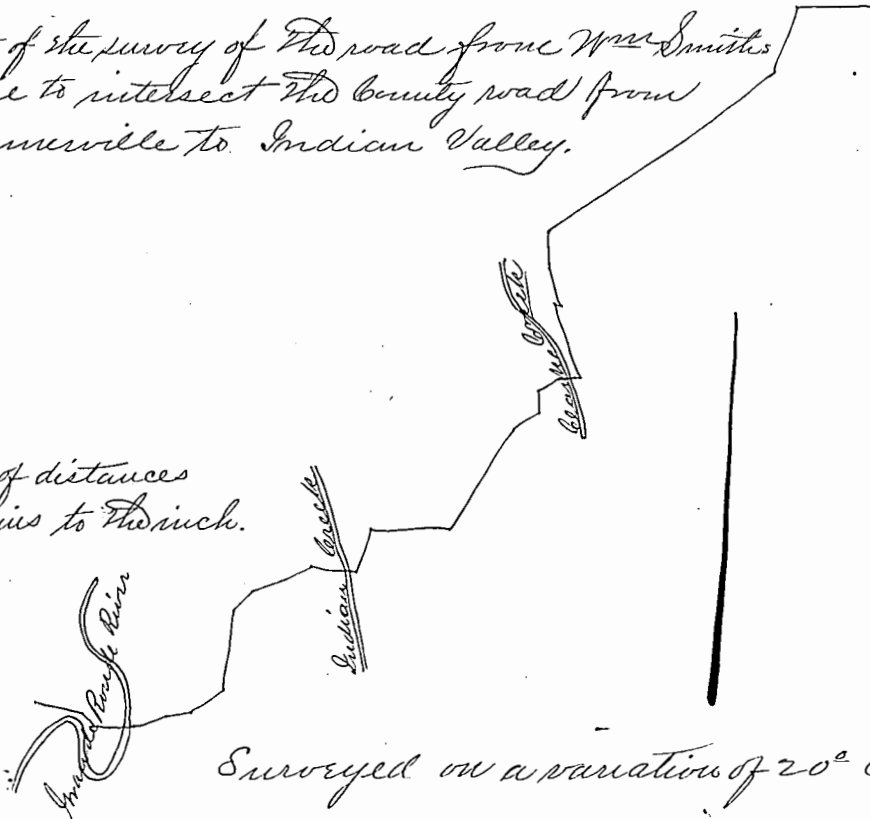 of the survey of the road from Wm Smiths
e to intersect the County road from
merville to Indian Valley.
Creek
of distances
ins to the inch.
Indian Creek
Grande Ronde River
Surveyed on a variation of 20°